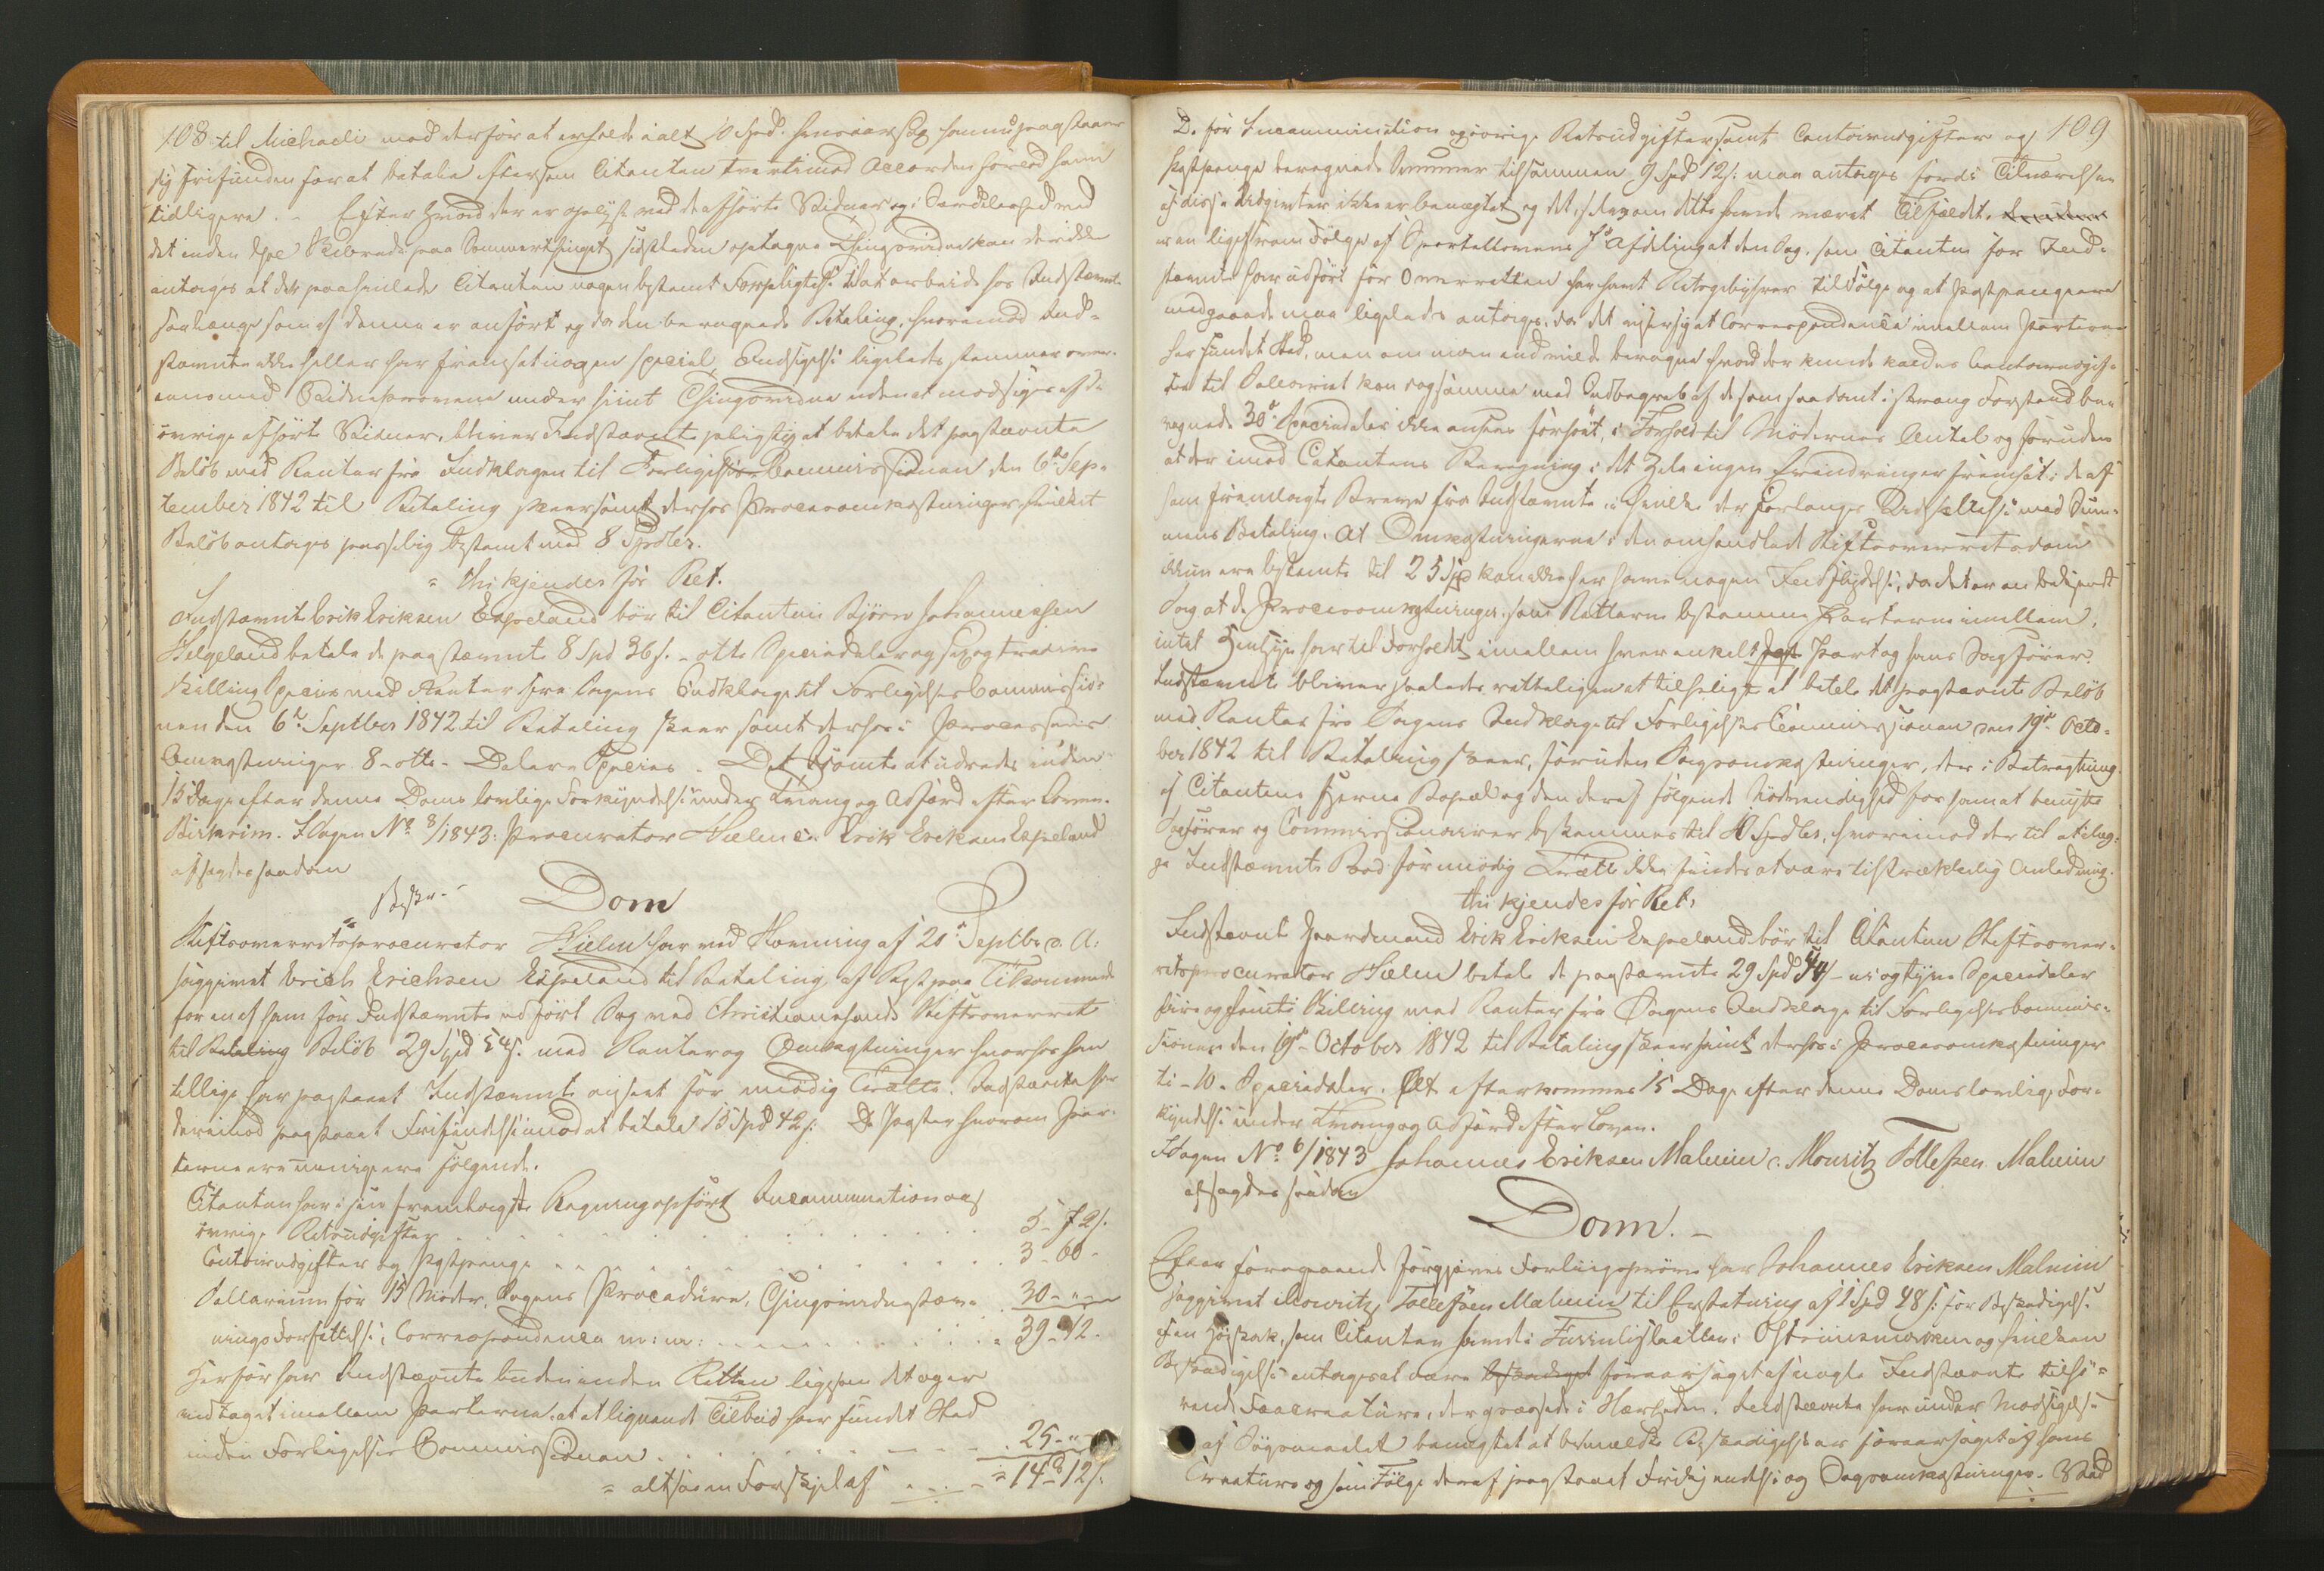 108 til Michaeli mod derfor at erholde i alt 10 Spd. hvoraf han nu paastaaer
sig frifunden for at betale eftersom Citanten tvertimod Accorden forlod ham
tidligere. - Efter hvad der er oplyst ved de afhørte Vidner og i Særdeleshed ved
det inden Skibrede paa Sommerthinget sidstleden optagne Thingsvidne kan der ikke
antages at der paahvilede Citanten nogen bestemt Forpligtelse til at arbeide hos Indstævnte
saalænge som af denne er anført og da den beregnede Betaling, hvorimod Ind-
stævnte ikke heller har fremsat nogen speciel Indsigelse ligeledes stemmer over-
eens med Vidneprovene under hiint Thingsvidne uden at modsiges af de
øvrige afhørte Vidner, bliver Indstævnte pligtig at betale det paastævnte
Beløb med Renter fra Indklagen til Forligelses Commissionen den 6te Sep-
tember 1842 til Betaling skeer samt derhos Procesomkostninger hvilket
Beløb antages passelig bestemt med 8 Spdlr.
= thi kjendes for Ret.
Indstævnte Erik Eriksen Espeland bør til Citanten Bjørn Johannessen
Helgeland betale de paastævnte 8 Spd 36 s. - otte Speciedaler og sex og tredive
Skilling Species med Renter fra Sagens Indklage til Forligelses Commissio-
nen den 6te Septbr 1842 til Betaling skeer samt derhos i Processens
Omkostninger 8 - otte - Dalere Species. Det Idømte at udredes inden
15 Dage efter denne Doms lovlige Forkyndelse under Tvang og Adfærd efter Loven.
Birkrim. I Sagen No 8/1843: Procurator Hielm c. Erik Eriksen Espeland
afsagdes saadan
Beskr.
Dom
Stiftsoverretsprocurator Hielm har ved Stævning af 20de Septbr d. A.
sagsøgt Erich Erichsen Espeland til Betaling af Rest paa Tilkommende
for en af ham for Indstævnte udført Sag ved Christiansands Stiftsoverret
til Beløb 29 Spd 54 s. med Renter og Omkostninger hvorhos han
tillige har paastaaet Indstævnte anseet for unødig Trætte. Indstævnte har
derimod paastaaet Frifindelse imod at betale 15 Spd 42 s. De Poster hvorom Par-
terne ere uenige ere følgende.
Citanten har i sin fremlagte Regning opført Incammination og
øvrige Retsudgifter . . . 5 - 72 s.
Contoirudgifter og Postpenge . . . 3 - 60 -
Sallarium for 15 Møder, Sagens Procedure, Thingsvidnestæv-
nings Forfattelse, Correspondence m: m: . . . 30 - " -
39 - 12 -
Herfor har Indstævnte buden inden Retten ligesom det og er
vedtaget imellem Parterne at et lignende Tilbud har fundet Sted
inden Forligelses Commissionen . . . 25 - " -
= altsaa en Forskjel af . . . = 14 - 12 s.
109
D. for Incammination og øvrige Retsudgifter samt Contoirudgifter og
Postpenge beregnede Summer tilsammen 9 Spd 12 s. maa antages fordi Tilværelsen
af disse Udgifter ikke er benægtet og det, selv om dette havde været Tilfældet,
er en ligefrem Følge af Sportellovens 1ste Afdeling at den Sag, som Citanten for Ind-
stævnte har udført for Overretten har havt Retsgebyhrer til Følge og at Postpenge ere
medgaaede maa ligeledes antages, da det viser sig at Correspondence imellem Parterne
har fundet Sted, men om man end vilde beregne hvad der kunde kaldes Contoirudgif-
ter til Sallariet kan dog samme med Indbegreb af de som saadant i streng Forstand be-
regnede 30te Speciedaler ikke ansees for høit, i Forhold til Mødernes Antal og foruden
at der imod Citantens Regning i det Hele ingen Erindringer fremsat i de af
ham fremlagte Breve fra Indstævnte, i hvilke der forlanges Udsættelse med Sum-
mens Betaling. At Omkostningerne i den omhandlede Stiftsoverretsdom
ikkun ere bestemte til 25 Spd kan ikke her have nogen Indflydelse, da det er en bekjendt
Sag at de Procesomkostninger, som Retterne bestemme Parterne imellem,
intet Hensyn har til Forholdet imellem hver enkelt Part og hans Sagfører.
Indstævnte bliver saaledes retteligen at tilpligte at betale det paastævnte Beløb
med Renter fra Sagens Indklage til Forligelses Commissionen den 19de Octo-
ber 1842 til Betaling skeer, foruden Sagsomkostninger, der i Betragtning
af Citantens fjerne Bopæl og den deraf følgende Nødvendighed for ham at benytte
Sagfører og Commissionairer bestemmes til 10 Spdlr, hvorimod der til at ilæg-
ge Indstævnte Bod for unødig Trætte ikke findes at være tilstrækkelig Anledning.
thi kjendes for Ret:
Indstævnte Gaardmand Erik Eriksen Espeland bør til Citanten Stiftsover-
retsprocurator Hielm betale de paastævnte 29 Spd 54 s - ni og tyve Speciedaler
fire og femti Skilling med Renter fra Sagens Indklage til Forligelsescommis-
sionen den 19de October 1842 til Betaling skeer samt derhos i Procesomkostninger
ti - 10 - Speciedaler. Alt efterkommes 15 Dage efter denne Doms lovlige For-
kyndelse under Tvang og Adfærd efter Loven.
I Sagen No 6/1843 Johannes Eriksen Malmin c. Mouritz Tollefsen Malmin
afsagdes saadan
Dom. -
Efter foregaaende forgjæves Forliigsprøve har Johannes Eriksen Malmin
sagsøgt Mouritz Tollefsen Malmin til Erstatning af 1 Spd 48 s. for Beskadigelse
paa en Høstak, som Citanten havde i Østeimsmarken og hvilken
Beskadigelse antages at være foraarsaget af nogle Indstævnte tilhø-
rende Faaecreature, der græssede i Nærheden. Indstævnte har under Modsigelse
af Søgsmaalet benægtet at bemeldte Beskadigelse er foraarsaget af hans
Creature og som Følge deraf paastaaet Frifindelse og Sagsomkostninger. Ved